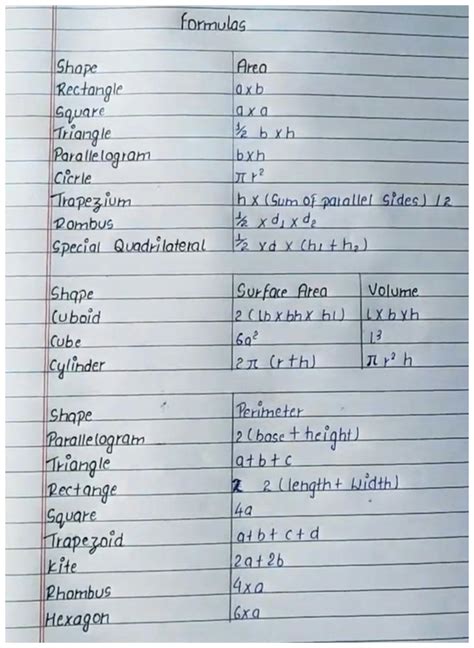 Formulas
Shape Area
Rectangle a x b
Square a x a
Triangle ½ b x h
Parallelogram b x h
Cicrle π r²
Trapezium h x (Sum of parallel Sides) / 2
Rombus ½ x d₁ x d₂
Special Quadrilateral ½ x d x (h₁ + h₂)
Shape Surface Area Volume
Cuboid 2 (lb x bh x hl) L x b x h
Cube 6a² l³
Cylinder 2π (r+h) π r² h
Shape Perimeter
Parallelogram 2 (base + height)
Triangle a + b + c
Rectange 2 2 (length + Width)
Square 4a
Trapezoid a + b + c + d
Kite 2a + 2b
Rhombus 4 x a
Hexagon 6 x a